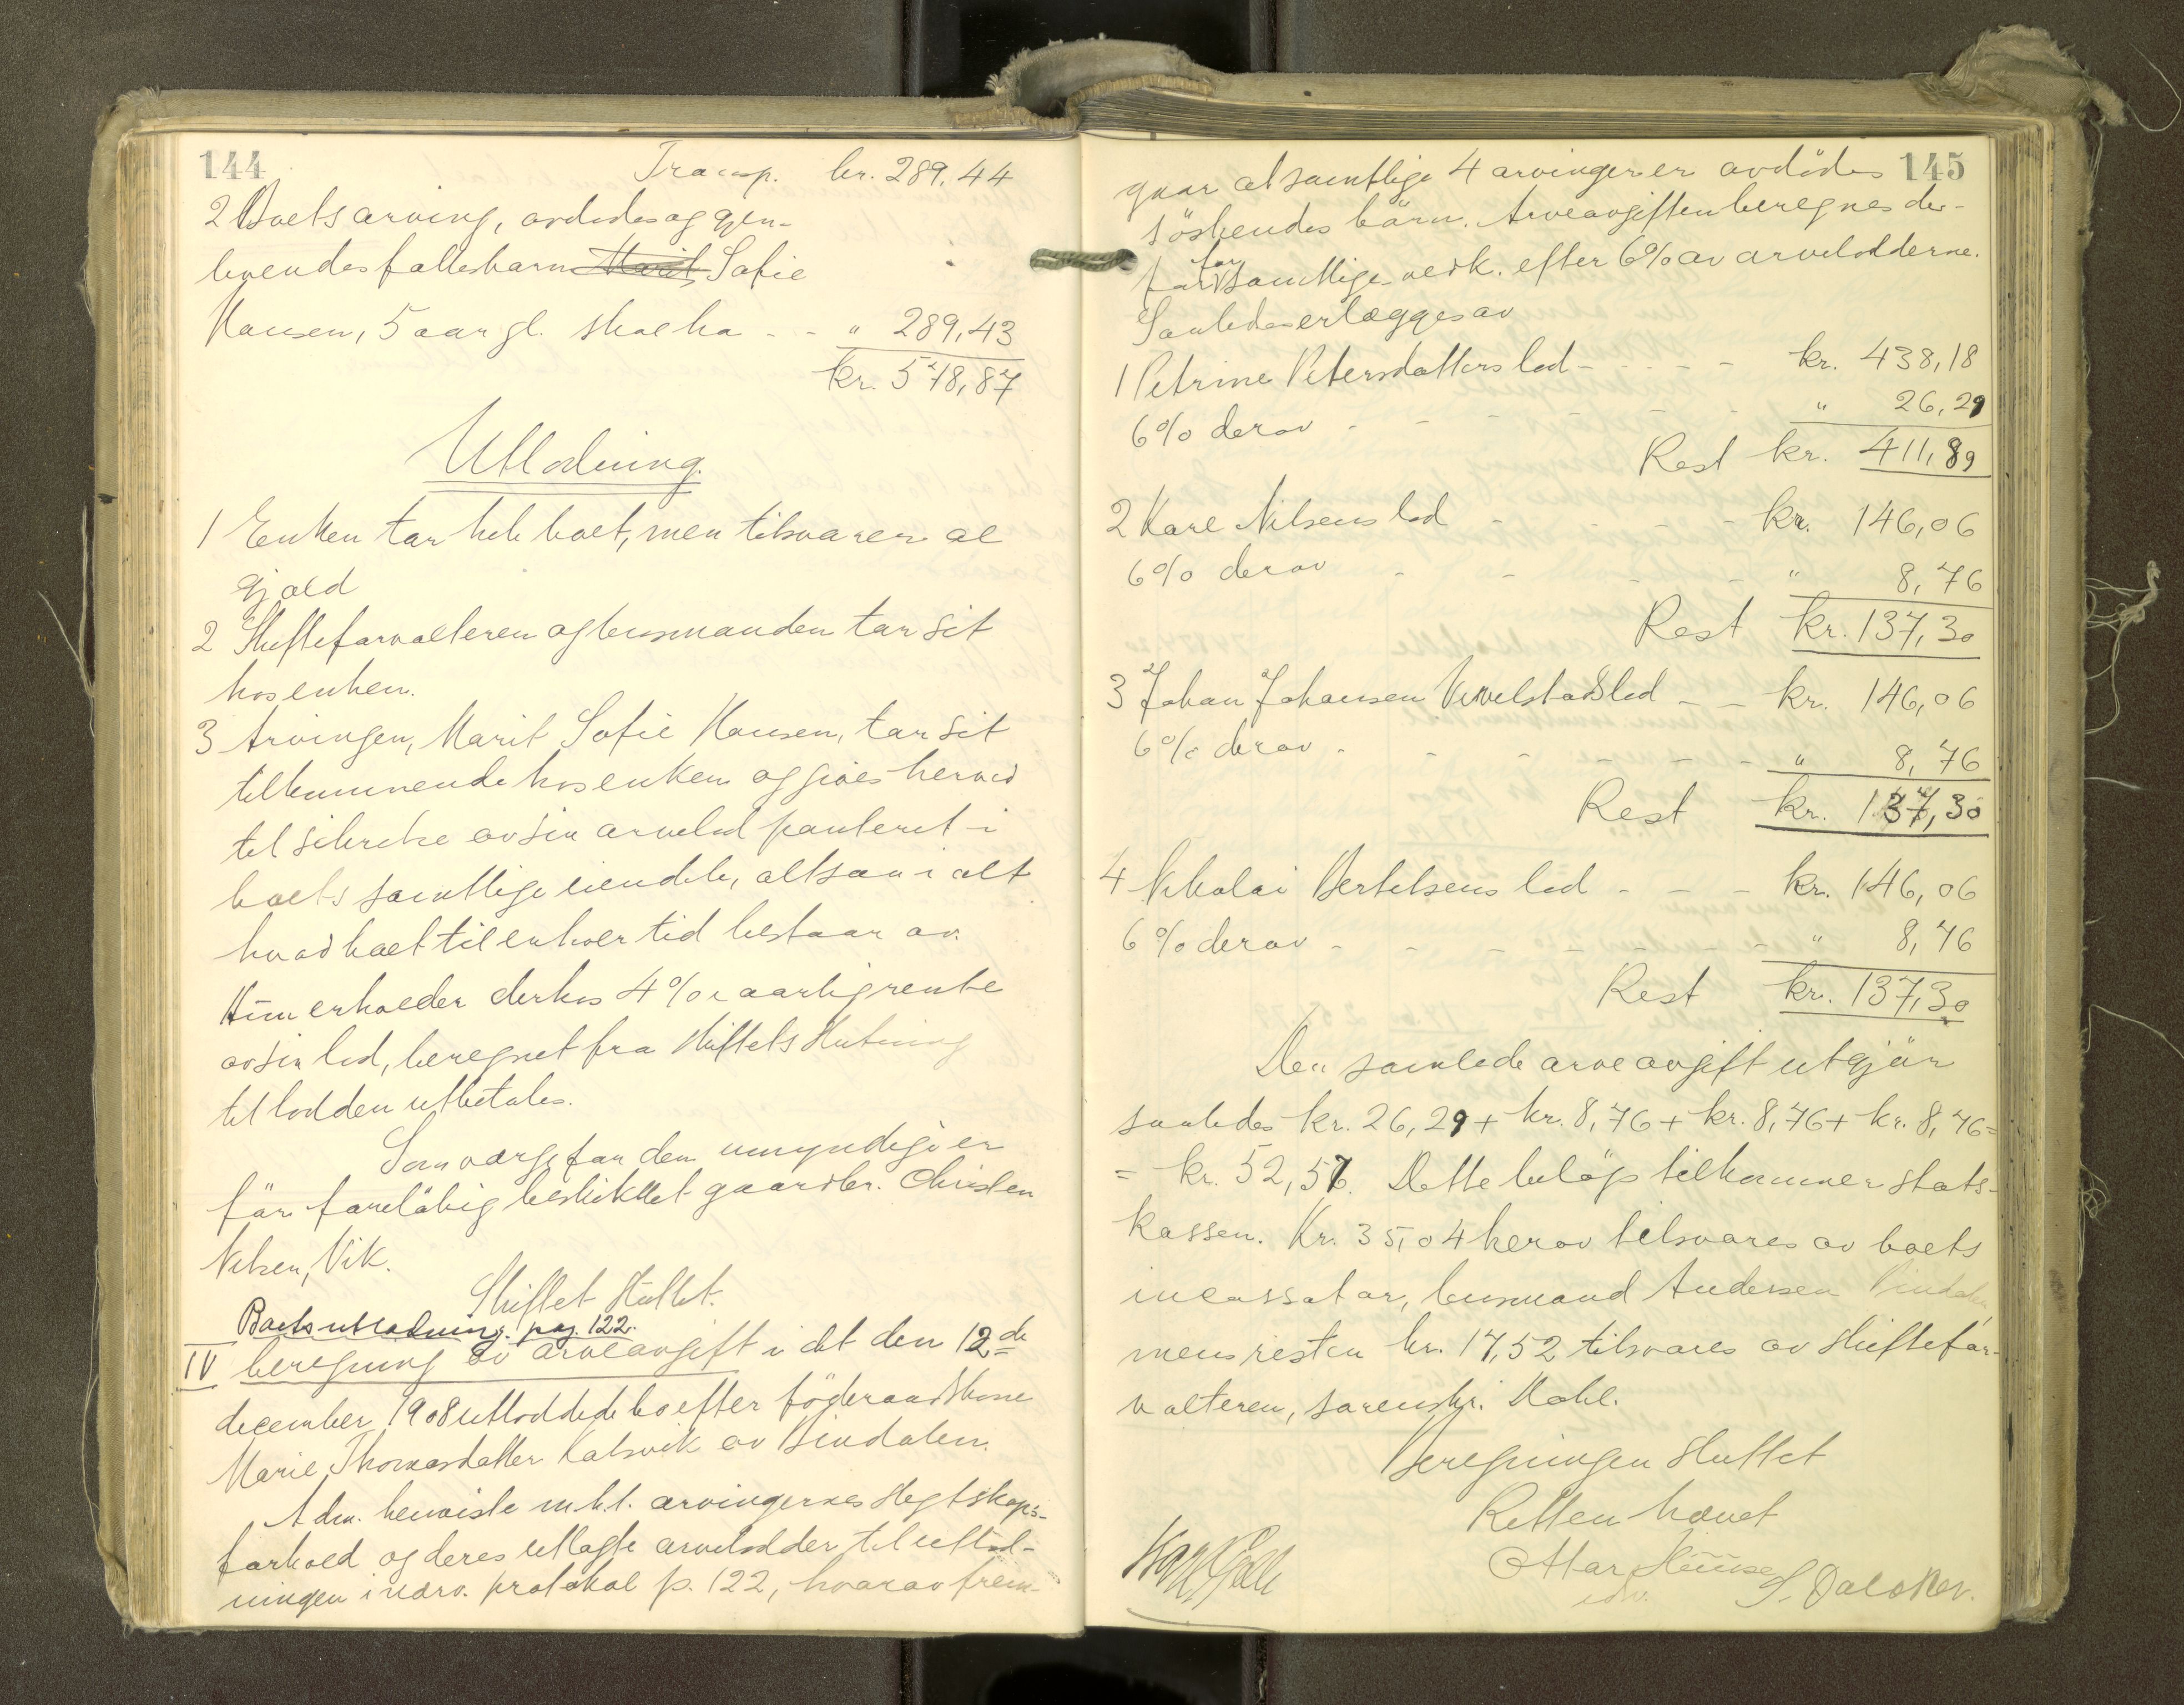 144
Transp. kr. 289,44
2 Boets arving, avdødes og gjen-
levendes fællesbarn Marit Sofie
Hansen, 5 aar gl. skal ha - - " 289,43
kr. 578,87
Utlodning.
1 Enken tar hele boet, men tilsvarer al
gjæld
2 Skifteforvalteren og lensmanden tar sit
hos enken.
3 Arvingen, Marit Sofie Hansen, tar sit
tilkommende hos enken og gives herved
til sikrelse av sin arvelod panteret i
boets samtlige eiendele, altsaa i alt
hvad boet til enhver tid bestaar av.
Hun erholder derhos 4% i aarlig rente
av sin lod, beregnet fra skiftets slutning
til lodden utbetales.
Som værge for den umyndige er
før foreløbig beskikket gaardbr. Christen
Nilsen, Vik.
Skiftet sluttet.
Boets utlodning. pag. 122.
IV beregning av arveavgift i det den 12de
december 1908 utloddede bo efter føderaadskone
Marie Thomasdatter Kalsvik av Bindalen.
Adm. henviste m.h.t. arvingernes slegtskaps-
forhold og deres utlagte arvelodder til utlod-
ningen i nærv. protokol p. 122, hvorav frem-
145
gaar at samtlige 4 arvinger er avdødes
søskendes børn. Arveavgiften beregnes der-
for for samtliges vedk. efter 6% av arvelodderne.
Saaledes erlægges av
1 Petrine Petersdatters lod - - - - - kr. 438,18
6% derav - - - - - - " 26,29
Rest kr. 411,89
2 Karl Nilsens lod - - - - kr. 146,06
6% derav - - - - - " 8,76
Rest kr. 137,30
3 Johan Johansen Vevelstads lod - - kr. 146,06
6% derav - - - - - - " 8,76
Rest kr. 137,30
4 Nikolai Bertelsens lod - - - kr. 146,06
6% derav - - - - - - - " 8,76
Rest kr. 137,30
Den samlede arveavgift utgjør
saaledes kr. 26,29 + kr. 8,76 + kr. 8,76 + kr. 8,76 =
= kr. 52,57. Dette beløp tilkommer stats-
kassen. Kr. 35,04 herav tilsvares av boets
incassator, lensmand Andersen Bindalen,
mens resten kr. 17,52 tilsvares av skiftefor-
valteren, sorenskr. Dahl.
Beregningen sluttet
Retten hævet
Ottar